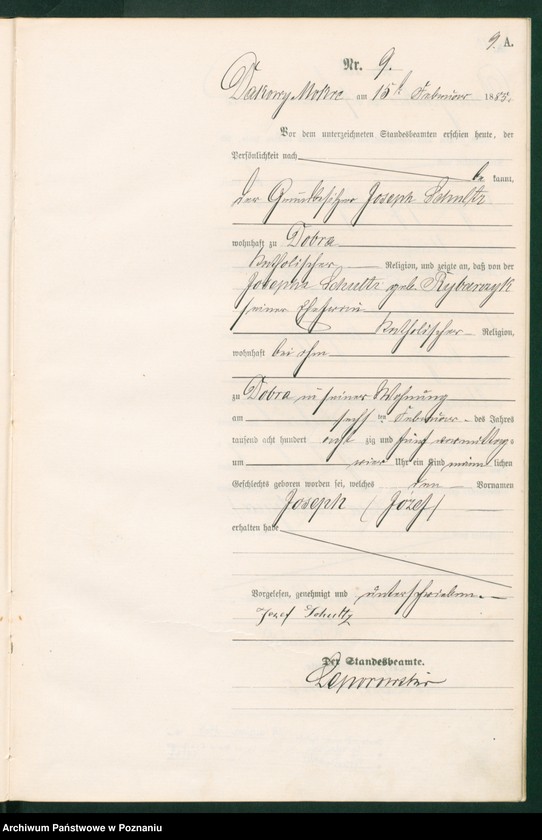 9. A.
Nr. 9.
Dakowy Mokre am 15t Februar 1885.
Vor dem unterzeichneten Standesbeamten erschien heute, der
Persönlichkeit nach
be kannt,
der Grundbesitzer Joseph Schultz
wohnhaft zu Dobra
katholischer Religion, und zeigte an, daß von der
Josepha Schultz geb. Rybarczyk
seiner Ehefrau
katholischer Religion,
wohnhaft bei ihm
zu Dobra in seiner Wohnung
am sechs ten Februar des Jahres
tausend acht hundert acht zig und fünf vormittags
um vier Uhr ein Kind männ lichen
Geschlechts geboren worden sei, welches den Vornamen
Joseph (Józef)
erhalten habe
Vorgelesen, genehmigt und unterschrieben.
Jozef Schultz
Der Standesbeamte.
Archiwum Państwowe w Poznaniu